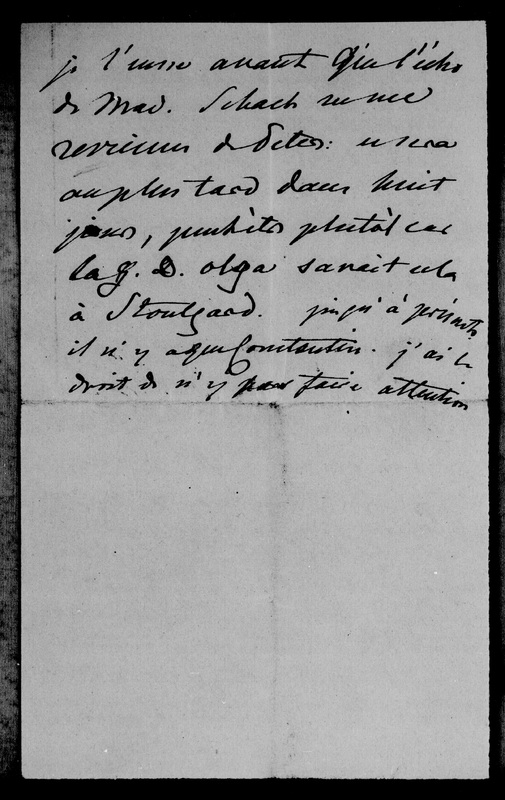 je l'eusse avant que l'écho
de Mad. Schach ne me
revienne de Peters: ce sera
au plus tard dans huit
jours, peut être plutôt car
la G. D. Olga savait cela
à Stoutgard. jusqu'à présent
il n'y a que Constantin. j'ai le
droit de n'y pas faire attention